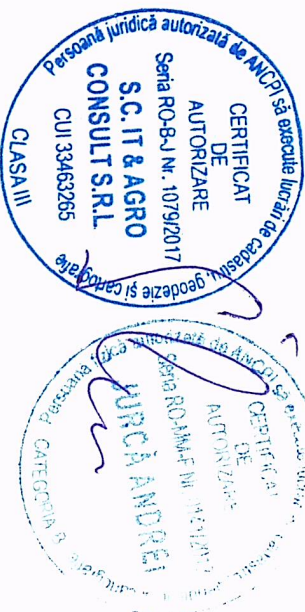 Persoană juridică autorizată de ANCPI să execute lucrări de cadastru, geodezie și cartografie
CERTIFICAT
DE
AUTORIZARE
Seria RO-B-J Nr. 1079/2017
S.C. IT & AGRO
CONSULT S.R.L
CUI 33463265
CLASA III
Persoană fizică autorizată de ANCPI să execute
CERTIFICAT
DE
AUTORIZARE
Seria RO-MM-F Nr.
JURCĂ ANDREI
CATEGORIA B